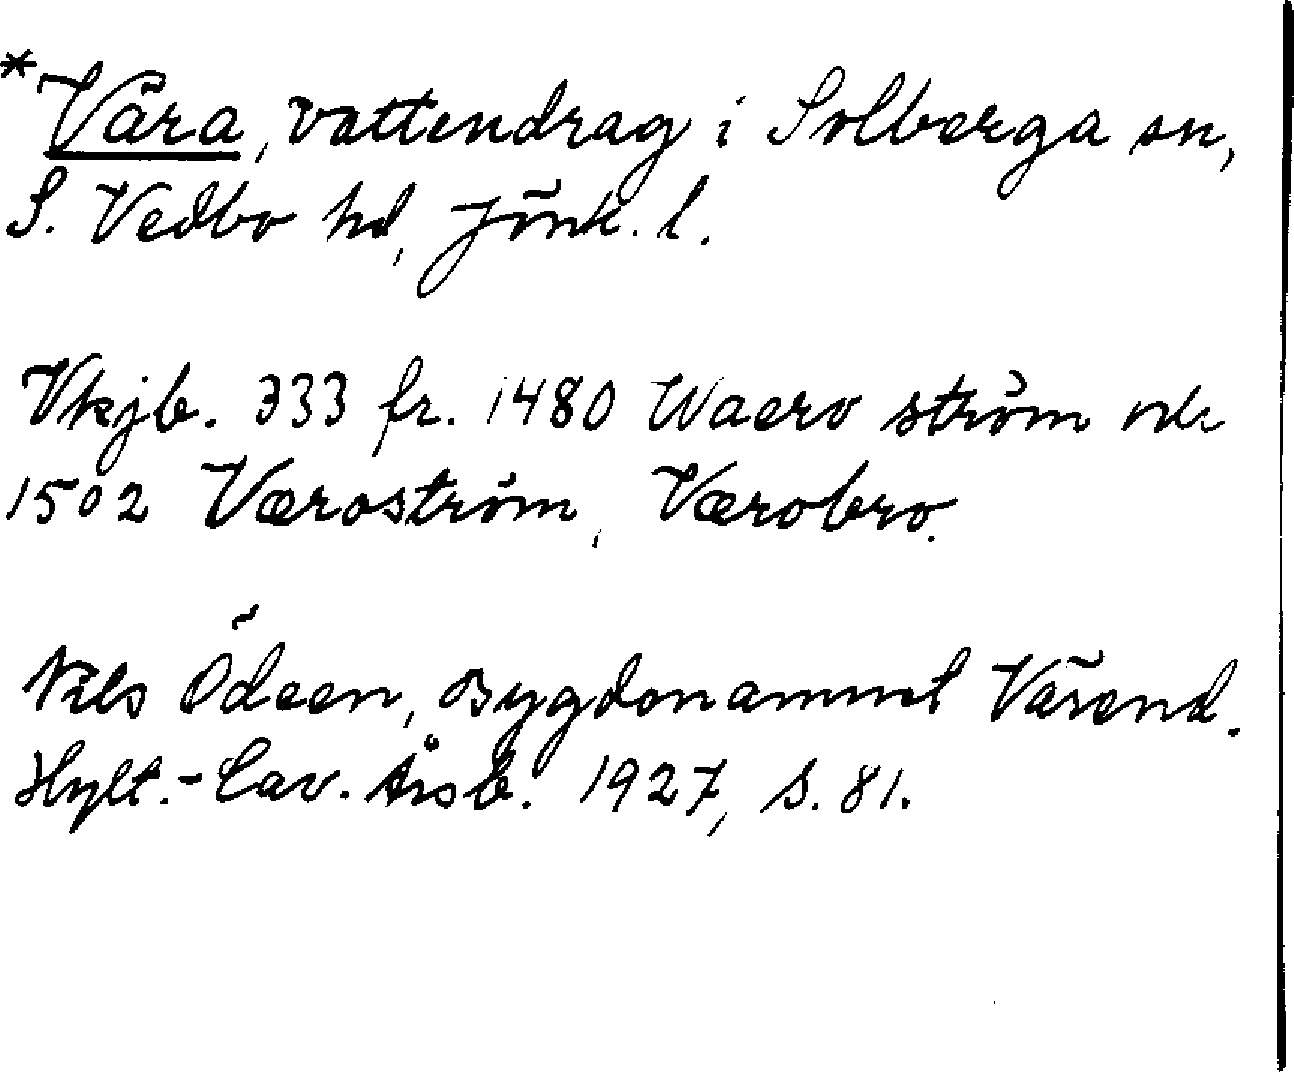 *Vära, vattendrag i Solberga sn,
S. Vedbo hd, Jönk. l.
Vkjb. 333 fr. 1480 Waero ström och
1502 Væroström, Værobro.
Nils Ödeen, Bygdenamnet Värend.
Hylt.-Cav. Årsb. 1927, s. 81.